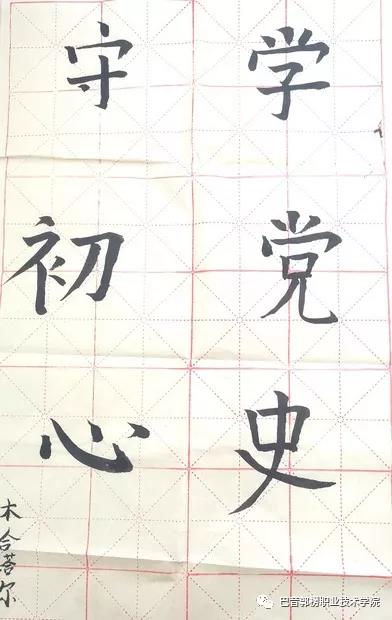 学党史
守初心
木合菩尔
巴音郭楞职业技术学院